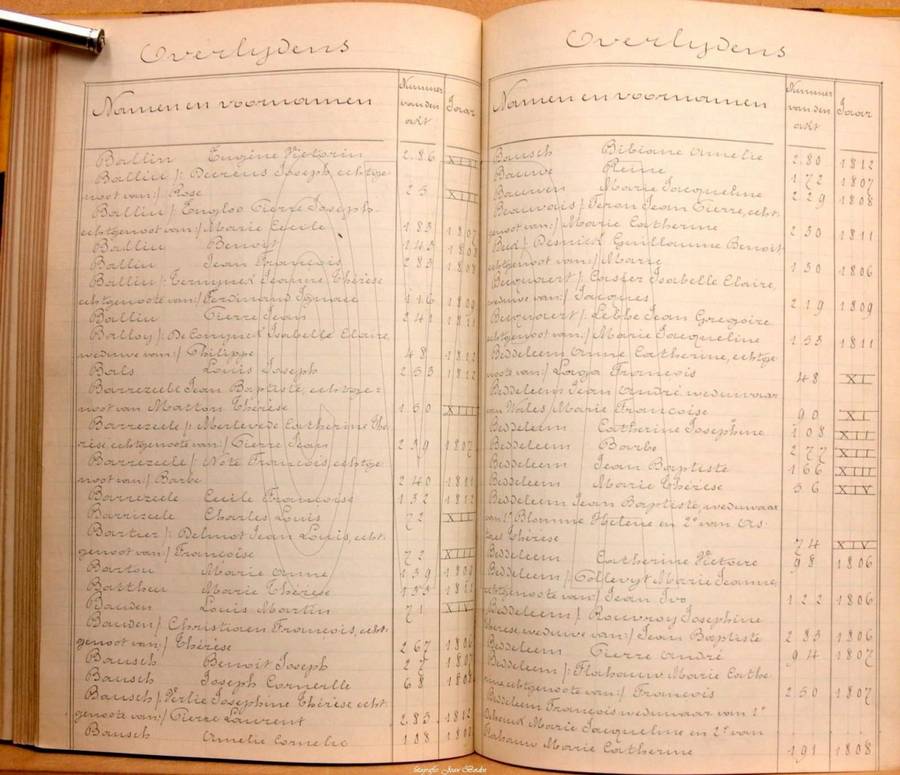 Overlijdens
Namen en voornamen
Nummer van den akt
Jaar
Ballin Eugène Victorin 286 XII
Balliu /: Devreus Joseph, echtge=
noot van:/ Rose 25 XII
Balliu /: Engloo Pierre Joseph
echtgenoot van:/ Marie Cecile 183 1807
Balliu Benoit 143 1808
Balliu Jean François 283 1808
Balliu /: Ternynck Jeanne Thérèse
echtgenoote van:/ Ferdinand Ignace 116 1809
Balliu Pierre Jean 242 1811
Balloy /: De Connynck Isabelle Claire,
weduwe van:/ Philippe 48 1812
Bals Louis Joseph 253 1812
Barrezeele Jean Baptiste, echtge=
noot van Matton Thérèse 150 XIII
Barrezeele /: Merlevede Catherine Thé
rèse, echtgenoote van:/ Pierre Jean 239 1807
Barrezeele /: Note François, echtge
noot van:/ Barbe 240 1811
Barrezeele Cecile Françoise 132 1812
Barrizeele Charles Louis 72 XII
Bartier /: Delmot Jean Louis, echt-
genoot van:/ Françoise 72 XIII
Bartou Marie Anne 139 1806
Battheu Marie Thérèse 155 1811
Bauden Louis Martin 71 XIV
Bauden /: Christiaen François, echt-
genoot van:/ Thérèse 267 1806
Bausch Benoit Joseph 27 1807
Bausch Joseph Corneille 68 1808
Bausch /: Verlie Josephine Thérèse echt-
genoote van:/ Pierre Laurent 283 1812
Bausch Amelie Cornelie 108
Overlijdens
Namen en voornamen
Nummer van den akt
Jaar
Bausch Bibiane Amelie 280 1812
Bauwe Reine 172 1807
Bauwen Marie Jacqueline 229 1808
Beauvais /: Jean Pierre, echt-
genoot van:/ Marie Catherine 230 1811
Desnick Guillaume Benoit
echtgenoot van:/ Marie 130 1806
Becquaert /: Casier Isabelle Claire,
weduwe van:/ Jacques 219 1809
Becquaert /: Lebbe Jean Gregoire
echtgenoot van:/ Marie Jacqueline 133 1811
Beddeleem Anne Catherine, echtge
noote van:/ Laga François 48 XI
Beddeleem Jean André weduwaar
van Wales Marie Françoise 90 XI
Beddeleem Catherine Josephine 108 XII
Beddeleem Barbe 277 XII
Beddeleem Jean Baptiste 166 XIII
Beddeleem Marie Thérèse 56 XIV
Beddeleem Jean Baptiste, weduwaar
van 1° Blomme Hélène en 2° van As=
Thérèse 74 XIV
Beddeleem Catherine Victoire 98 1806
Beddeleem /: Gollevyt Marie Jeanne,
echtgenoote van:/ Jean Ivo 122 1806
Beddeleem /: Rouvroy Josephine
Thérèse, weduwe van:/ Jean Baptiste 283 1806
Beddeleem Pierre André 94 1807
Beddeleem /: Flahauw Marie Cathe
rine echtgenoote van:/ François 250 1807
Beddeleem François weduwaar van 1°
Marie Jacqueline en 2° van
Flahauw Marie Catherine 191 1808
fotografie: Jean Bodin